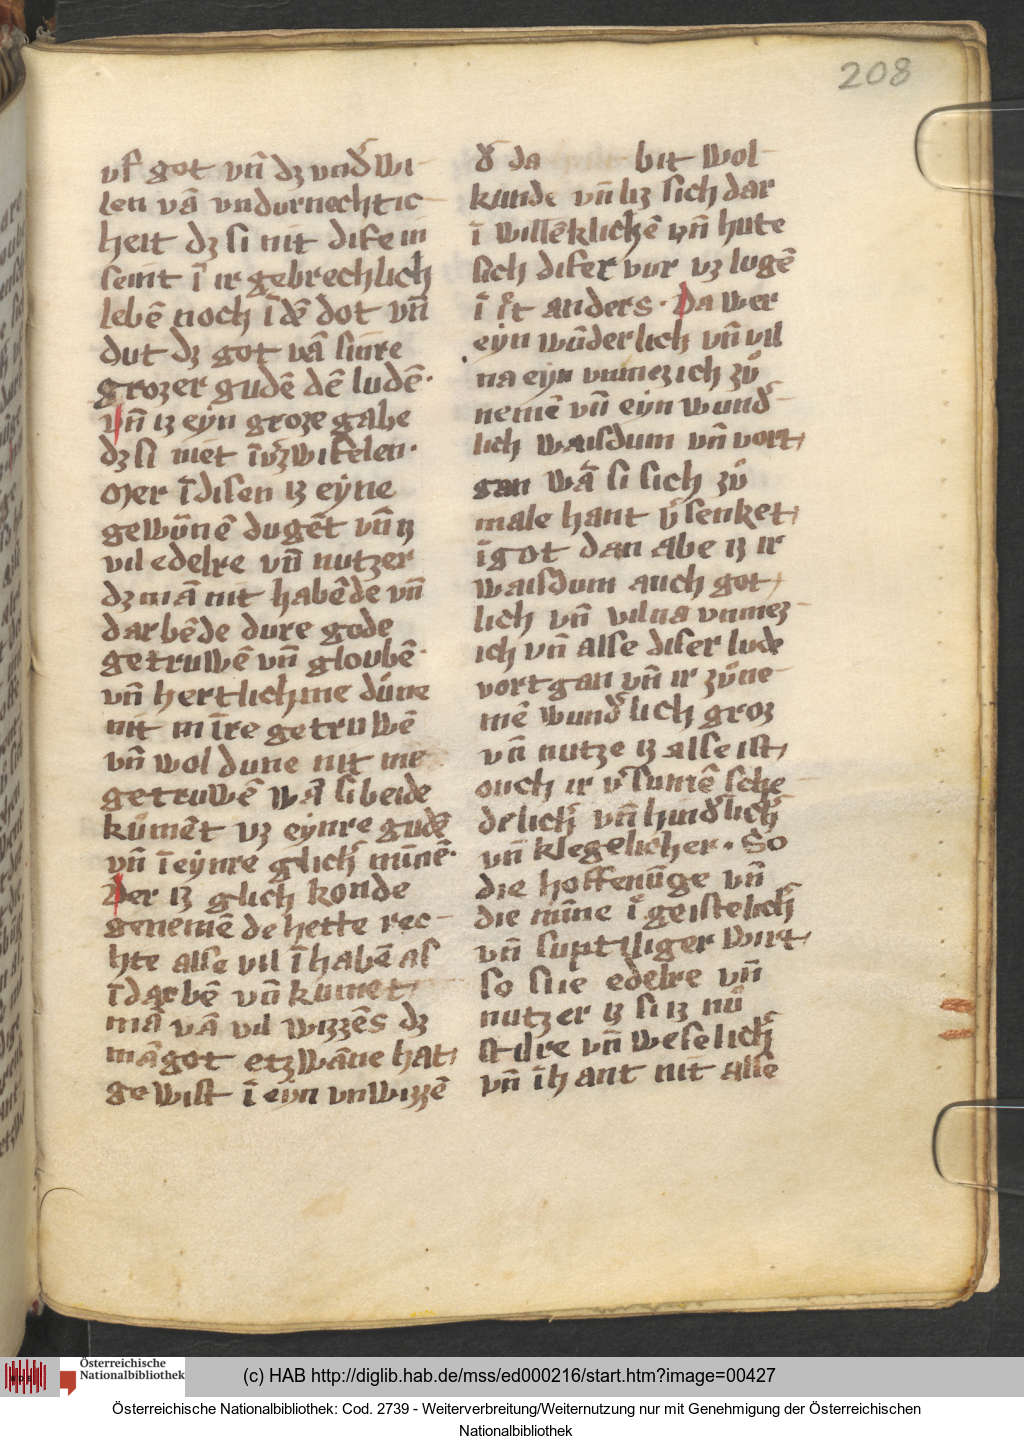 208
vf got vn̄ dz vnd͛ wi-
len vā vndurnechtic-
heit dz si nit dise in
seint ī ir gebrechlich
lebē noch ī dē dot vn̄
dut dz got vā sinre
grozer gudē dē ludē·
vn̄ iz eyn groze gabe
dz si niet ī v͛zwifelen·
Mer ī disen iz eyne
gewūnē dugēt vn̄ iz
vil edelre vn̄ nutzer
dz mā nit habēde vn̄
darbēde dure gode
getruwē vn̄ gloubē·
vn̄ hertlich me dūne
nit mīre getruwē
vn̄ wol dune nit me
getruwē wā si beide
kūmēt vz eynre gudē
vn̄ ī eynre glich͛ mīnē·
Der iz glich konde
genemē de hette rec-
hte alse vil ī habē as
ī darbē vn̄ kumet
mā vā vil wizzēs dz
mā got etzwāne hat
gewist ī eyn vnwizzē
d͛ da bit wol-
kunde vn̄ liz sich dar
ī willēklichē vn̄ hute
sich diser vur vz lugē
ī i͛t anders· Da wer
eyn wūderlich vn̄ vil
na eyn vnmezich zů
nemē vn̄ eyn wund͛-
lich waisdum vn̄ vort
gan wā si sich zů
male hant v͛senket
ī got dan abe iz ir
waisdum auch got
lich vn̄ vil na vnmez-
ich vn̄ alse diser lude
vort gan vn̄ ir zůne-
mē wund͛lich groz
vn̄ nutze iz alse ist
ouch ir v͛sumē sche-
delich͛ vn̄ hind͛lich͛
vn̄ klegelicher· So
die hoffenūge vn̄
die mīne i͛ geistelich͛
vn̄ suptiliger wirt
so si ie edelre vn̄
nutzer iz si iz nů
stilre vn̄ weselich͛
vn̄ ī hant nit alse
Österreichische
Nationalbibliothek
(c) HAB http://diglib.hab.de/mss/ed000216/start.htm?image=00427
Österreichische Nationalbibliothek: Cod. 2739 - Weiterverbreitung/Weiternutzung nur mit Genehmigung der Österreichischen
Nationalbibliothek